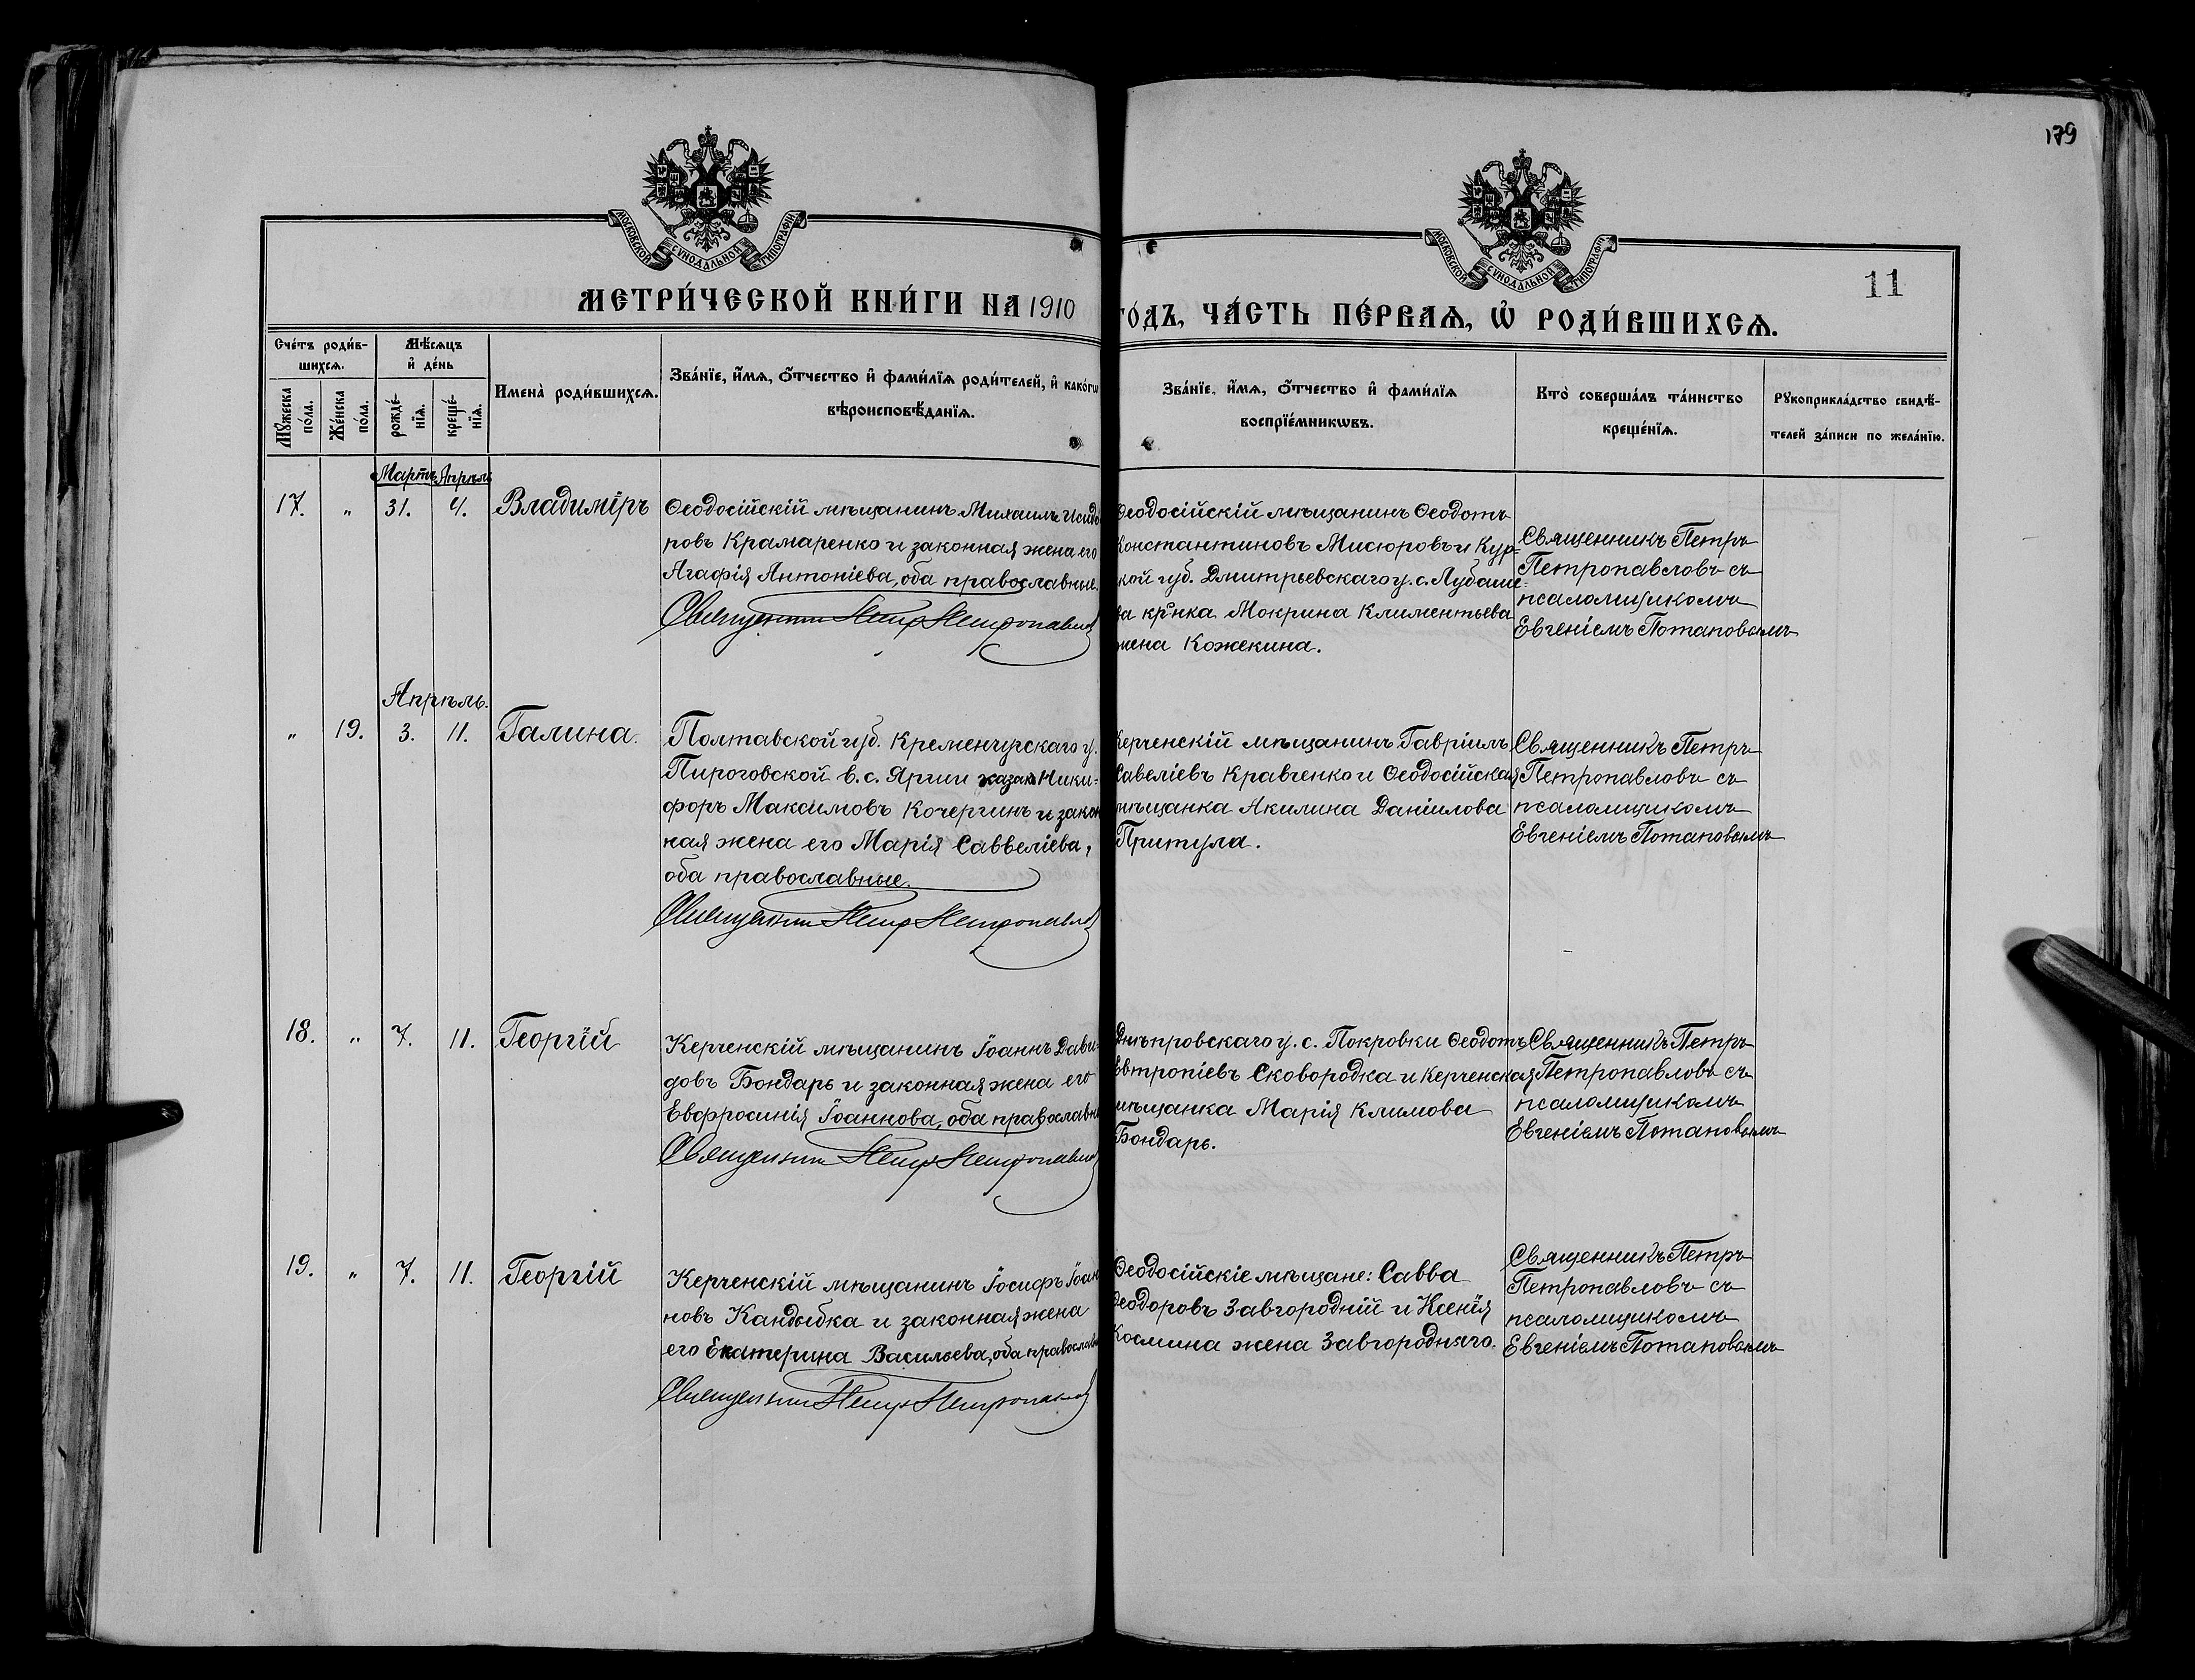 179
МОСКОВСКОЙ СѴНОДАЛЬНОЙ ТИПОГРАФІИ
МОСКОВСКОЙ СѴНОДАЛЬНОЙ ТИПОГРАФІИ
11
МЕТРИ́ЧЕСКОЙ КНИ́ГИ НА 1910
ГО́ДЪ, ЧА́СТЬ ПЕ́РВАѦ, Ѽ РОДИ́ВШИХСѦ.
Сче́тъ роди́в-
шихсѧ.
Мѣ́сѧцъ
и҆ де́нь
Мꙋ́жеска
по́ла.
Же́нска
по́ла.
рожде́-
нїѧ.
креще́-
нїѧ.
Имена̀ роди́вшихсѧ.
Зва́нїе, и҆́мѧ, ѻ҆́тчество и҆ фами́лїѧ роди́телей, и҆ како́гѡ
вѣроисповѣ́данїѧ.
Зва́нїе, и҆́мѧ, ѻ҆́тчество и҆ фами́лїѧ
воспрїе́мникѡвъ.
Кто̀ соверша́лъ та́инство
креще́нїѧ.
Рꙋкоприкла́дство свидѣ́-
телей за́писи по жела́нїю.
Мартъ Апрѣль
17. " 31. 4. Владиміръ
Ѳеодосійскій мѣщанинъ Михаилъ Исидо
ровъ Крамаренко и законная жена его
Агафія Антоніева, оба православные.
Священникъ Петръ Петропавлов
Ѳеодосійскій мѣщанинъ Ѳеодотъ
Константиновъ Мисюровъ и Кур=
кой губ. Дмитрьевскаго у. с. Лубаше=
ва кр-нка Мокрина Климентьева
жена Кожекина.
Священникъ Петръ
Петропавловъ съ
псаломщикомъ
Евгеніемъ Потаповымъ
Апрѣль.
" 19. 3. 11. Галина.
Полтавской губ. Кременчугскаго у.
Пироговской в. с. Ярги казакъ Ники=
форъ Максимовъ Кочергинъ и закон
ная жена его Марія Саввеліева,
оба православные.
Священникъ Петръ Петропавлов
Керченскій мѣщанинъ Гавріилъ
Савеліевъ Кравченко и Ѳеодосійская
мѣщанка Акилина Даніилова
Притула.
Священникъ Петръ
Петропавловъ съ
псаломщикомъ
Евгеніемъ Потаповымъ
18. " 7. 11. Георгій
Керченскій мѣщанинъ Іоаннъ Дави=
довъ Бондарь и законная жена его
Евфросинія Іоаннова, оба православны
Священникъ Петръ Петропавлов
Днѣпровскаго у. с. Покровки Ѳеодотъ
Евтропіевъ Сковородка и Керченская
мѣщанка Марія Климова
Бондарь.
Священникъ Петръ
Петропавловъ съ
псаломщикомъ
Евгеніемъ Потаповымъ
19. " 7. 11. Георгій
Керченскій мѣщанинъ Іосифъ Іоан
новъ Кандыбка и законная жена
его Екатерина Васильева, оба православн
Священникъ Петръ Петропавлов
Ѳеодосійскіе мѣщане: Савва
Ѳеодоровъ Завгородній и Ксенія
Космина жена Завгородняго.
Священникъ Петръ
Петропавловъ съ
псаломщикомъ
Евгеніемъ Потаповымъ